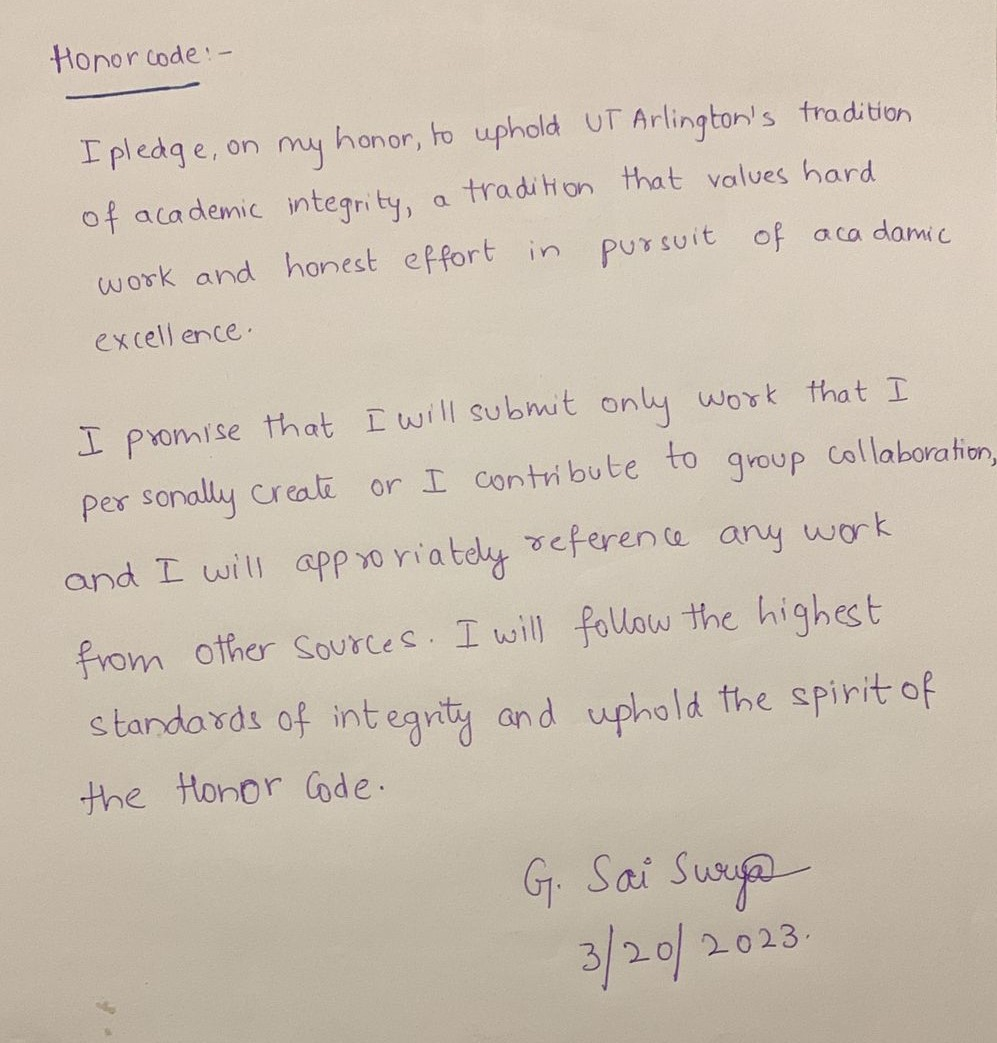 Honor code:-
I pledge, on my honor, to uphold UT Arlington's tradition
of academic integrity, a tradition that values hard
work and honest effort in pursuit of acadamic
excellence.
I promise that I will submit only work that I
personally create or I contribute to group collaboration,
and I will approriately reference any work
from other sources. I will follow the highest
standards of integrity and uphold the spirit of
the Honor Code.
G. Sai Surya
3/20/2023.